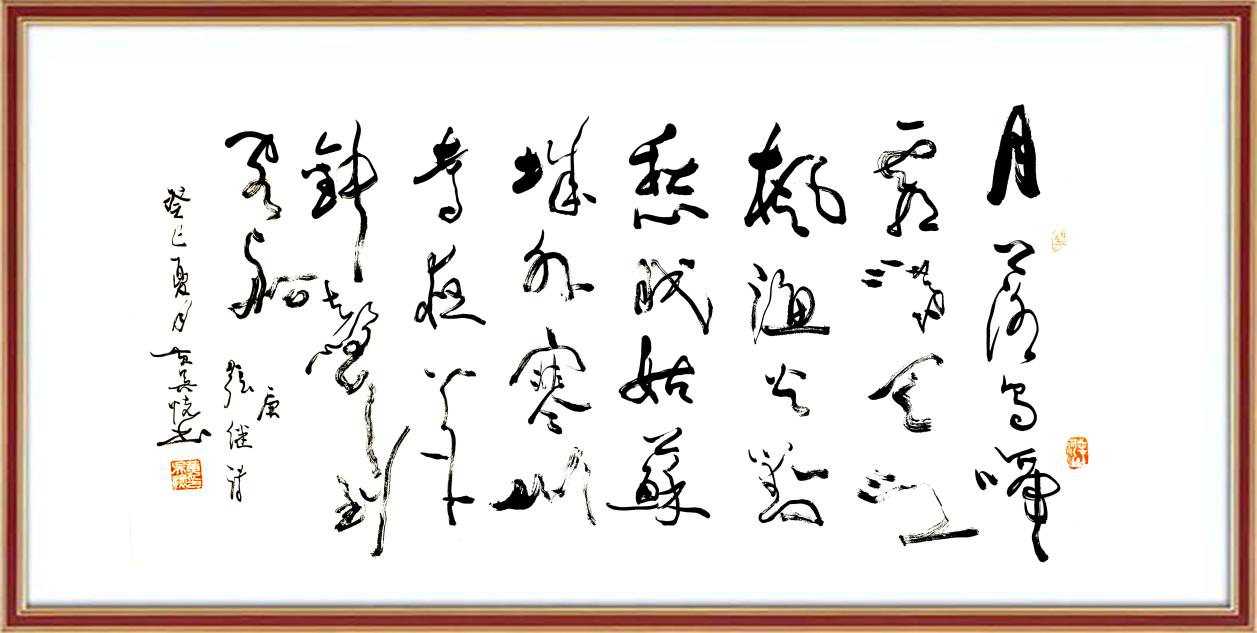 月落烏啼
霜满天江
楓渔火對
愁眠姑蘇
城外寒山
寺夜半
鈡聲到
客船
唐
张继诗
癸巳夏月